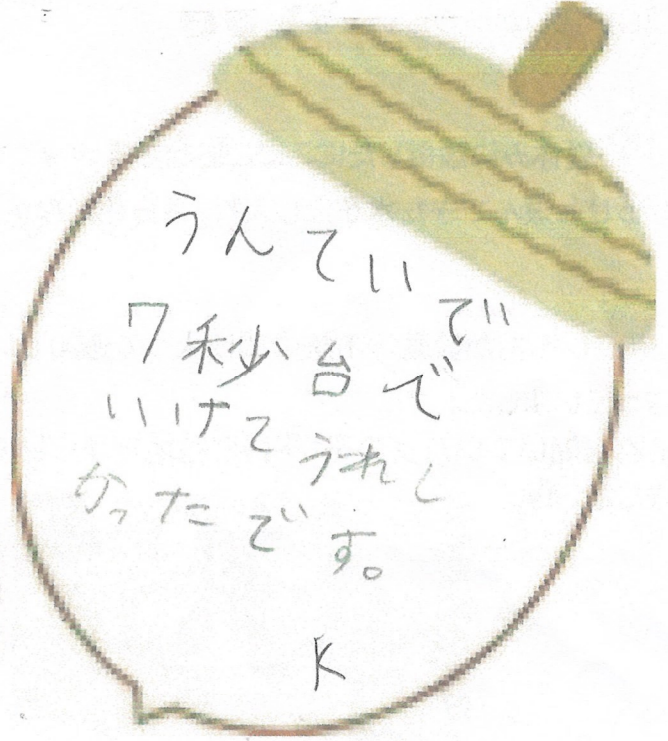 うんていで
7秒台で
いけてうれし
かったです。
K